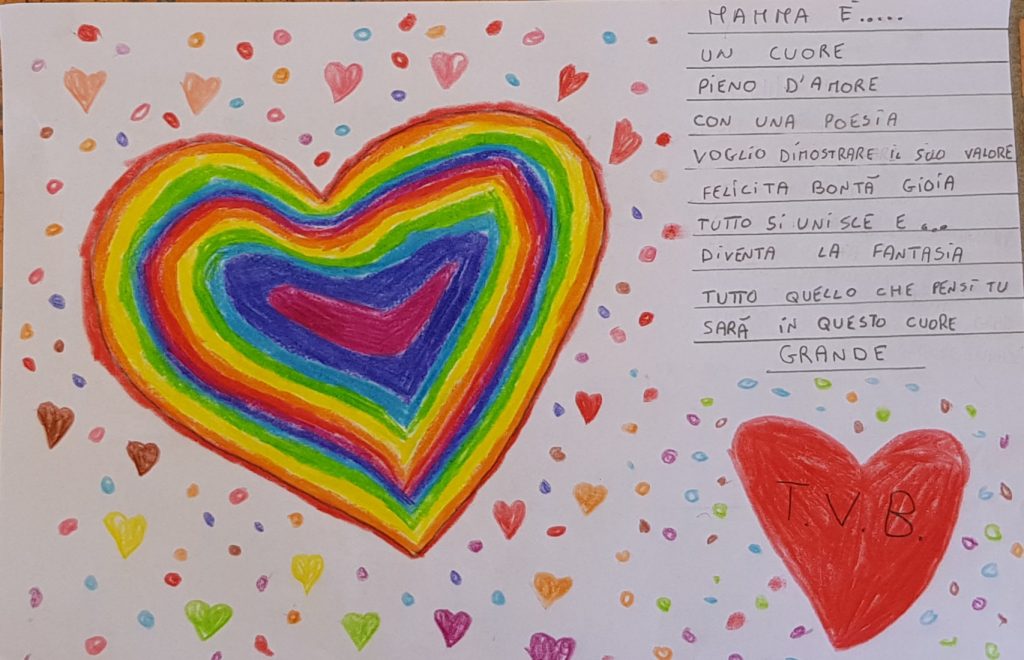 MAMMA È.....
UN CUORE
PIENO D'AMORE
CON UNA POESIA
VOGLIO DIMOSTRARE IL SUO VALORE
FELICITA BONTÀ GIOIA
TUTTO SI UNISCE E ...
DIVENTA LA FANTASIA
TUTTO QUELLO CHE PENSI TU
SARÀ IN QUESTO CUORE
GRANDE
T.V.B.